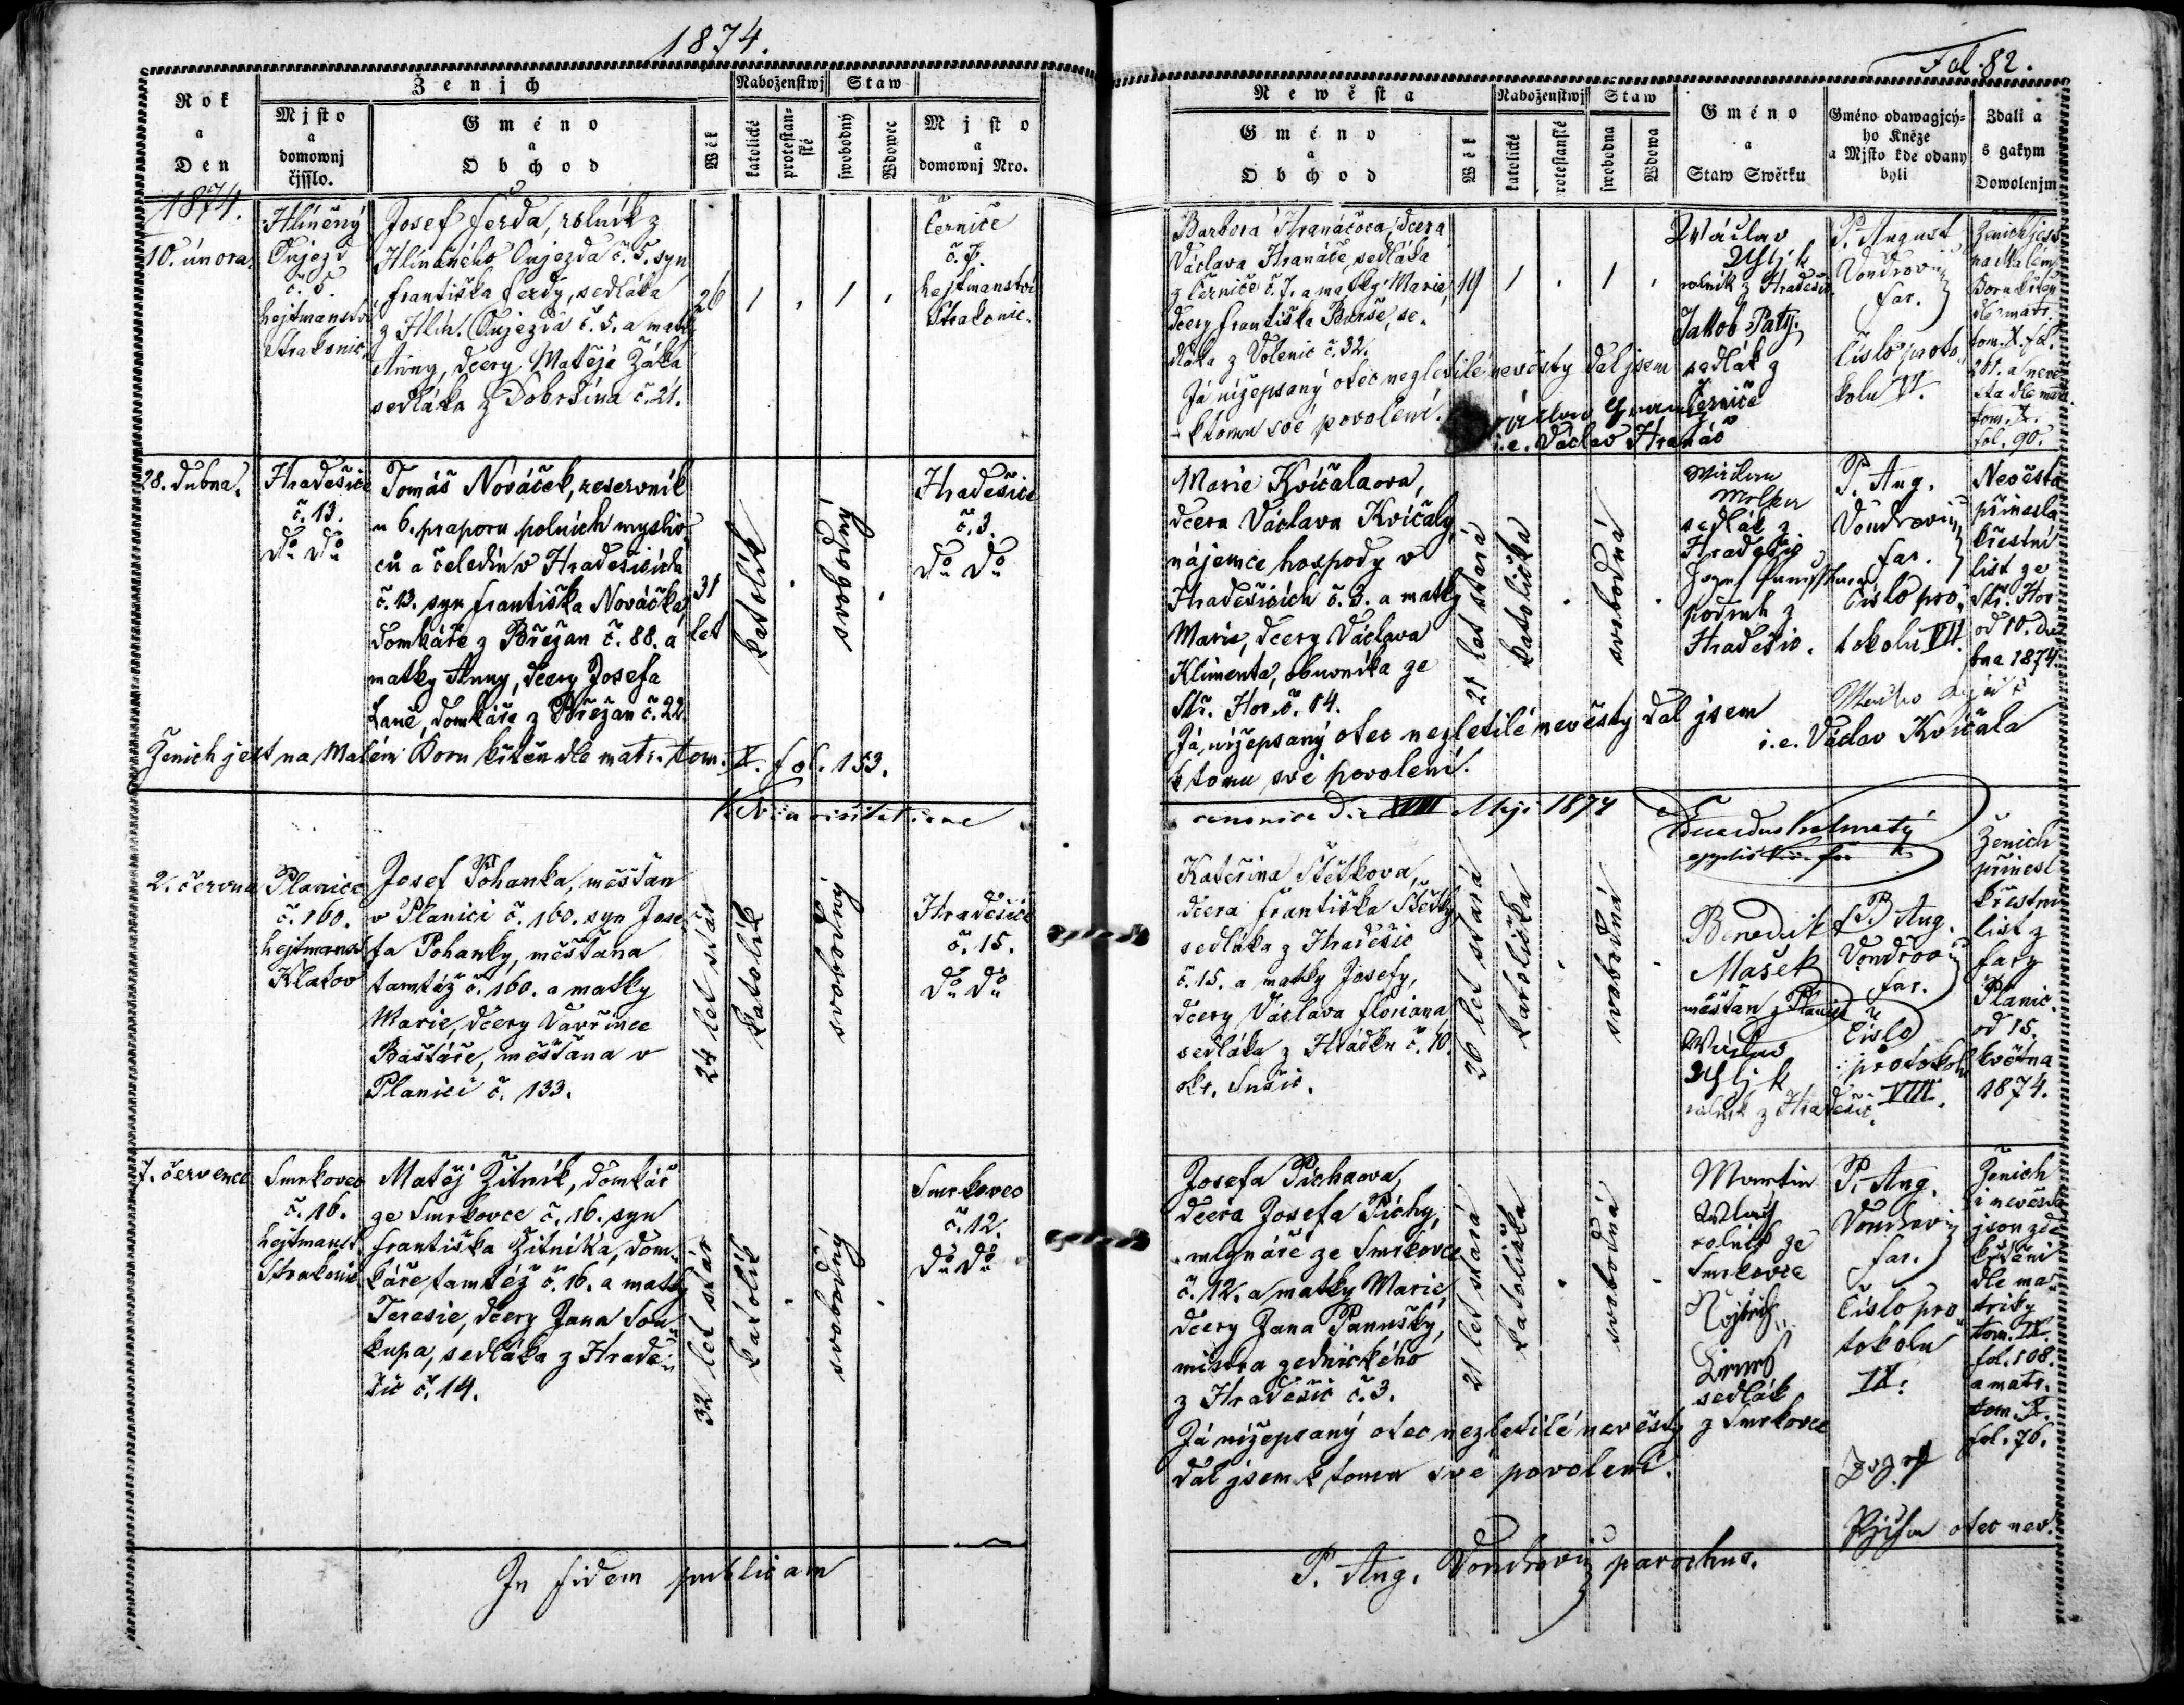 1874.
Fol. 82.
Ženich
Náboženstwj
Staw
Rok
a
Den
Mjsto
a
domownj
čjsslo.
Gméno
a
Obchod
Wěk
katolické
protestan-
ské
swobodný
Wdowec
Mjsto
a
domownj Nro.
Newěsta
Náboženstwj
Staw
Gméno
a
Obchod
Wěk
katolické
protestanské
swobodna
Wdowa
Gméno
a
Staw Swětku
Gméno odawagjcý-
ho Kněze
a Mjsto kde odany
byli
Zdali a
s gakym
Dowolenjm
1874.
10. února.
Hlíněný
Oujezd
č. 5.
hejtmanství
Strakonic.
Josef Ferda, rolník z
Hliněného Oujezda č. 5. syn
Františka Ferdy, sedláka
z Hlin. Oujezda č. 5. a matky
Anny, dcery Matěje Žáka
sedláka z Dobršína č. 21.
26
1
1
Černice
č. 7.
hejtmanství
Strakonic.
Barbora Hranáčova, dcera
Václava Hranáče, sedláka
z Černíče č. 7. a matky Marie,
dcery Františka Bureše, se-
dláka z Volenic č. 32.
Já nížepsaný otec nezletilé nevěsty dal jsem
k tomu své povolení.
i.e. Václav Hranáč
19
1
1
Wáclav
Uhljk
rolník z Hradešic.
Jakob Patý,
sedlák z
Černíče
P. August
Vondrovic
far.
Číslo proto-
kolu VI.
Ženich jest
na Malém
Boru křtěn
dle matr.
tom. X. fol.
201. a nevě-
sta dle matr.
tom. X.
fol. 90.
28. dubna.
Hradešice
č. 13.
do do
Tomáš Nováček, reservník
u 6. praporu polních mysliv-
ců a čeledín v Hradešicích
č. 13. syn Františka Nováčka,
domkáře z Břežan č. 88. a
matky Anny, dcery Josefa
Laně, domkáře z Břežan č. 22.
Ženich jest na Malém Boru křtěn dle matr. tom. X. fol. 153.
31
let
katolík
svobodný
Hradešice
č. 3.
do do
Marie Kvíčalaova,
dcera Václava Kvíčaly,
nájemce hospody v
Hradešicích č. 3. a matky
Marie, dcery Václava
Klimenta, obuvníka ze
Stř. Hor. č. 14.
Já, nížepsaný otec nezletilé nevěsty dal jsem
k tomu své povolení.
i.e. Václav Kvíčala
21 let stará
katolička
svobodná
sedlák z
Hradešic
podruh z
Hradešic.
P. Aug.
Vondrovic
far.
Číslo pro-
tokolu VII.
Nevěsta
přinesla
křestní
list ze
Stř. Hor
od 10. du-
bna 1874.
visitatione
canonica die XVIII Maji 1874
2. června
Planice
č. 160.
hejtmanst.
Klatov
Josef Pohanka, měšťan
v Planici č. 160. syn Jose-
fa Pohanky, měšťana
tamtéž č. 160. a matky
Marie, dcery Vavřince
Baštáře, měšťana v
Planici č. 133.
24 let stár
katolík
svobodný
Hradešice
č. 15.
do do
Kateřina Štětkova,
dcera Františka Štětky
sedláka z Hradešic
č. 15. a matky Josefy,
dcery Václava Floriana
sedláka z Hrádku č. 10.
okr. Sušic.
26 let stará
katolička
svobodná
Benedikt
Mašek
měšťan z Planice
Václav
Uhljk
rolník z Hradešic.
P. Aug.
Vondrovic
far.
Číslo
protokolu
VIII.
Ženich
přinesl
křestní
list z
fary
Planic.
od 15.
května
1874.
7. července
Smrkovec
č. 16.
hejtmanst.
Strakonic
Matěj Žitník, domkář
ze Smrkovce č. 16. syn
Františka Žitníka, dom-
káře tamtéž č. 16. a matky
Teresie, dcery Jana Sou-
kupa, sedláka z Hrade-
šic č. 14.
32 let stár
katolík
svobodný
Smrkovec
č. 12.
do do
Josefa Píchaova,
dcera Josefa Píchy,
mlynáře ze Smrkovce
č. 12. a matky Marie,
dcery Jana Panušky,
mistra zednického
z Hradešic č. 3.
Já nížepsaný otec nezletilé nevěsty
dal jsem k tomu své povolení.
21 let stará
katolička
svobodná
Martin
rolník ze
Smrkovce
sedlák
z Smrkovce
P. Aug.
Vondrovic
far.
Číslo pro-
tokolu
IX.
Jozef
Pjcha otec nev.
Ženich
i nevěsta
jsou zde
křtěni
dle ma-
triky
tom. IX.
fol. 108.
a matr.
tom. X.
fol. 76.
In fidem publicam
P. Aug. Vondrovic parochus.